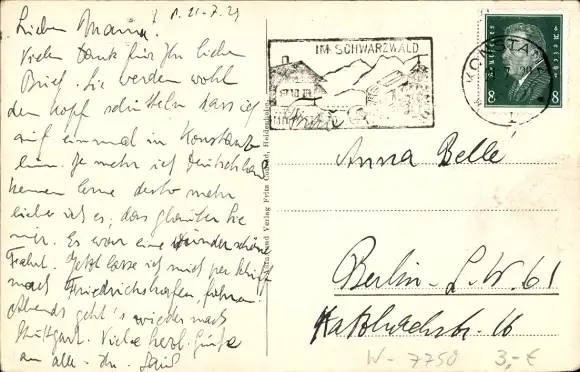 Lieber Mama.
1. 21-7.29
Vielen Dank für Ihr lieben
Brief. Sie werden wohl
den Kopf schütteln dass ich
auf einmal in Konstanz
bin. Je mehr ich Deutschland
kennen lerne desto mehr
liebe ich es, das glauben Sie
mir. Es war eine wunderschöne
Fahrt. Jetzt lasse ich mich per Schiff
nach Friedrichshafen fahren.
Abends geht's wieder nach
Stuttgart. Viele herzl. Grüße
an alle.
IM SCHWARZWALD
KONSTANZ
Deutsches Reich
8 8
Druck und Verlag Fritz
Anna Belle
Berlin - S.W. 61
Katzbachstr. 16
W- 7750 3,-€